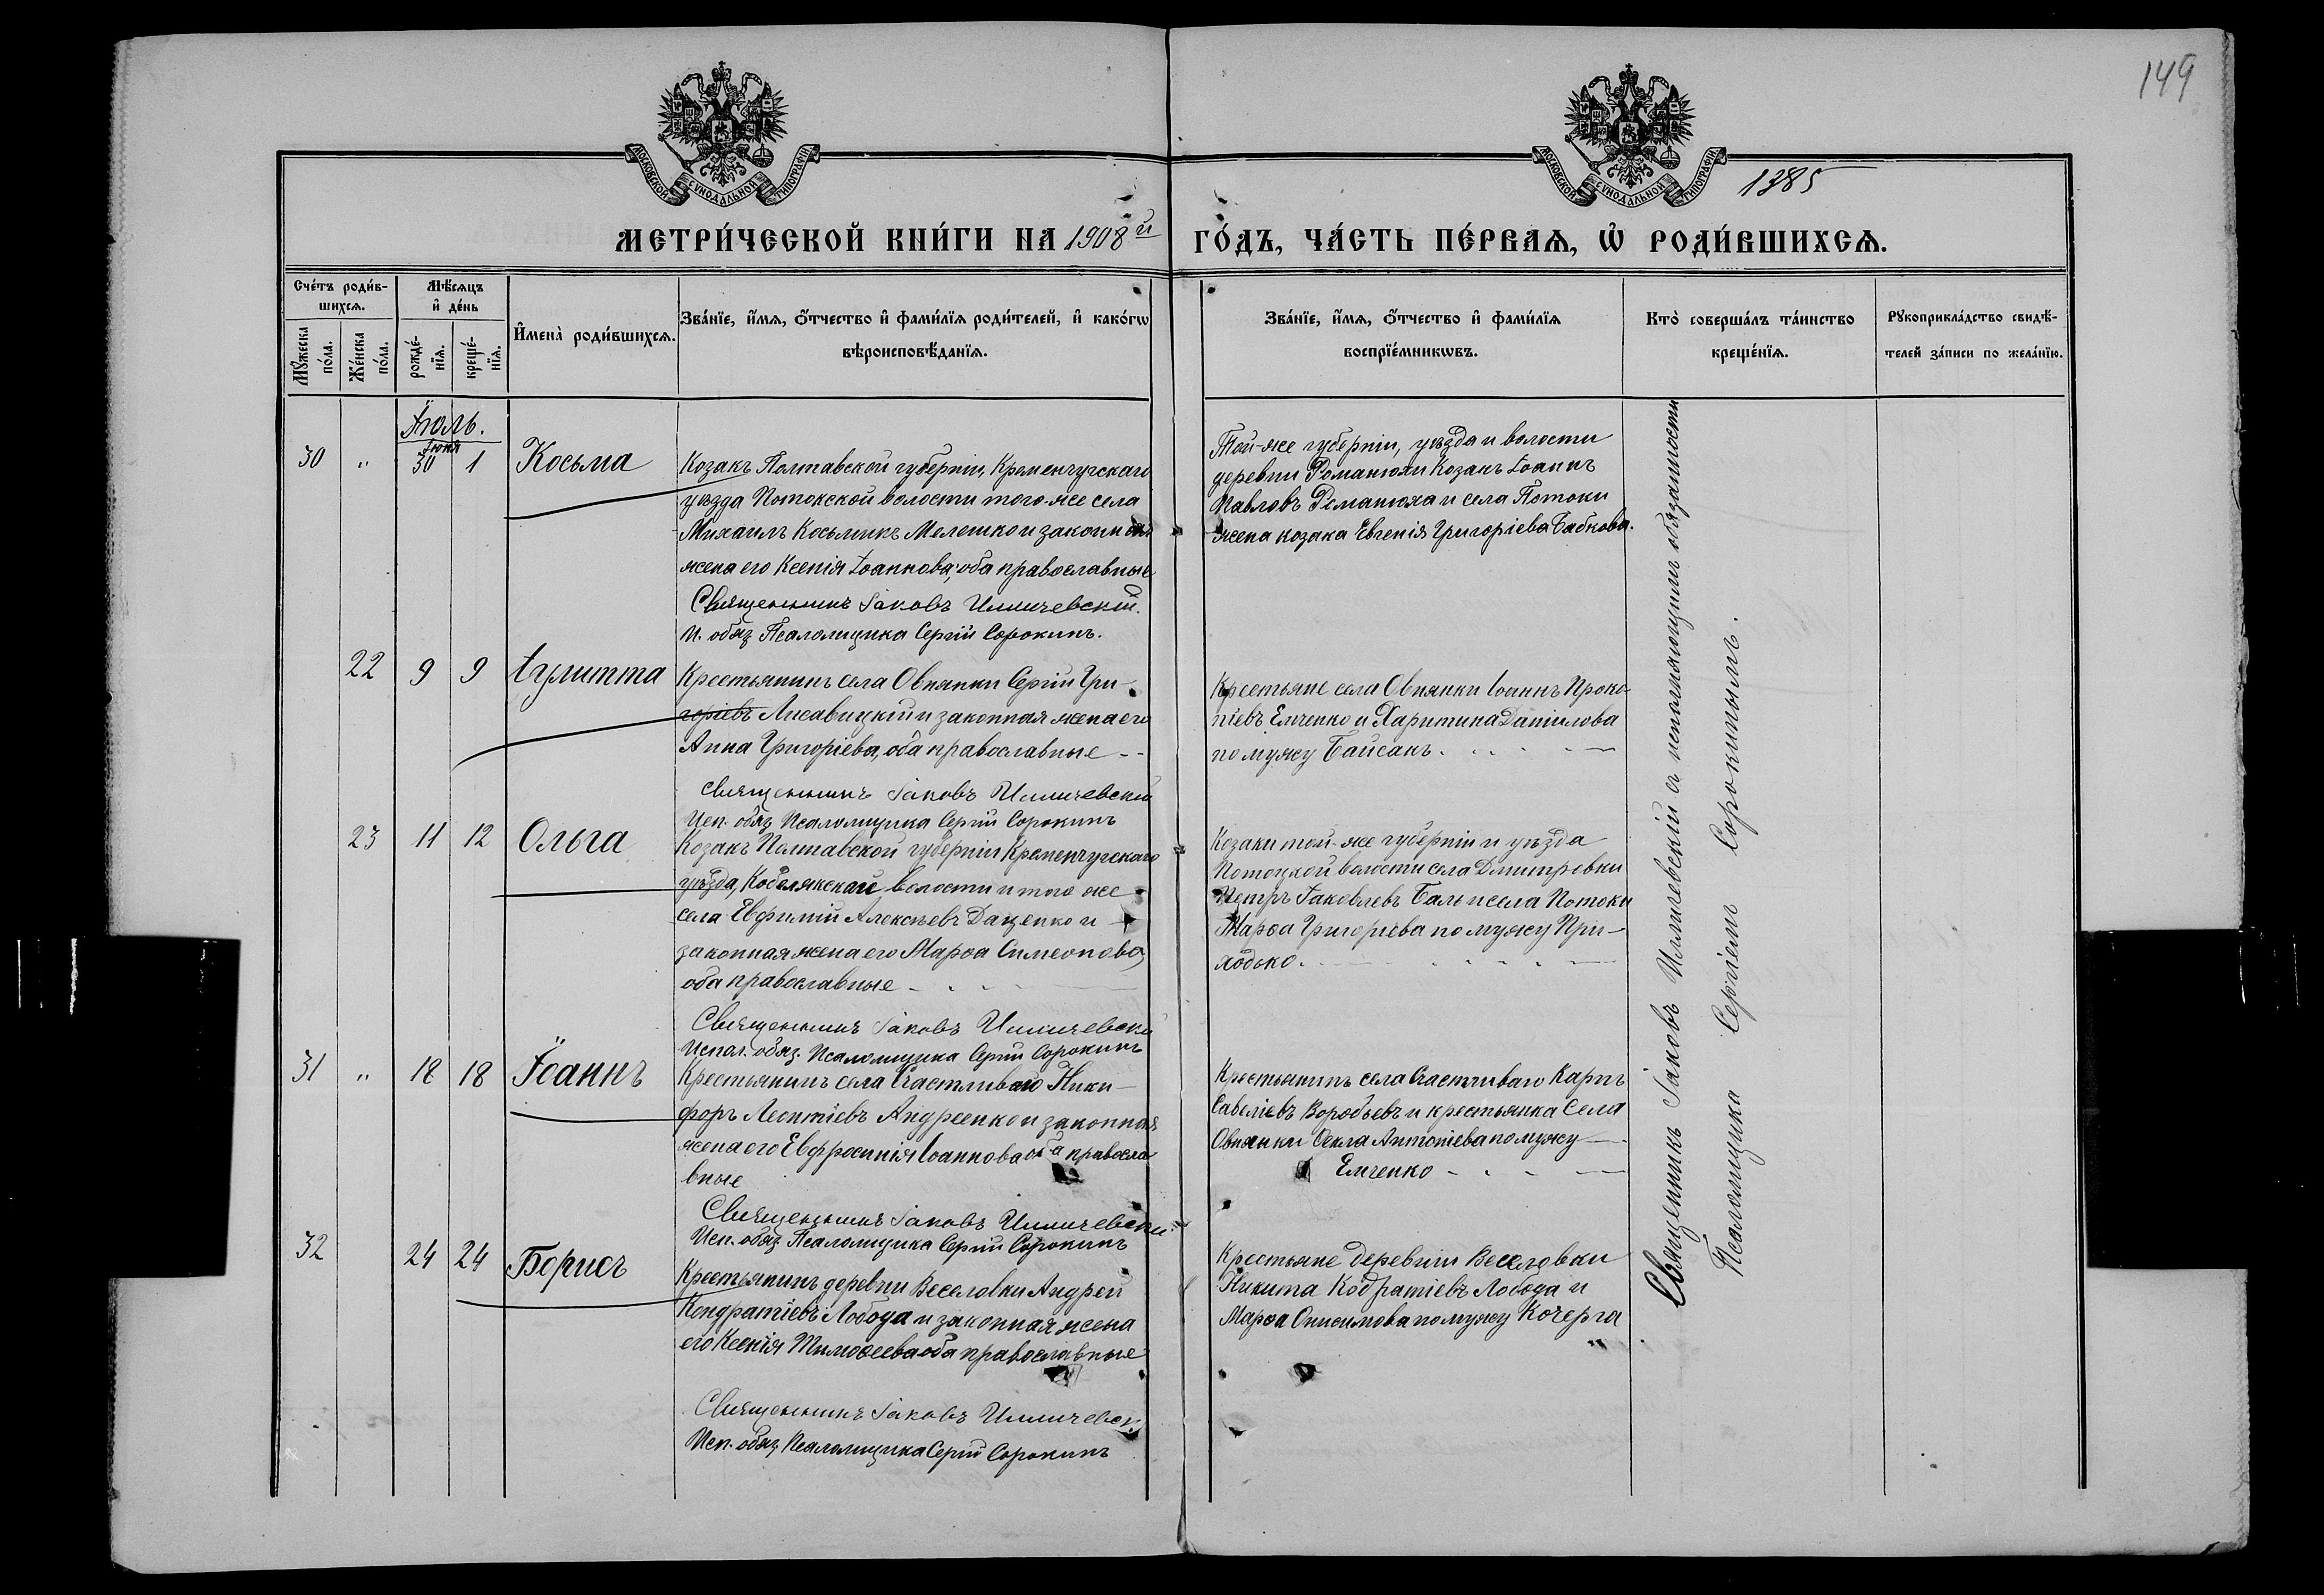 149
МОСКОВСКОЙ СУНОДАЛЬНОЙ ТИПОГРАФІИ
МОСКОВСКОЙ СУНОДАЛЬНОЙ ТИПОГРАФІИ
1385
МЕТРИ́ЧЕСКОЙ КНИ́ГИ НА 1908й ГО́ДЪ, ЧА́СТЬ ПЕ́РВАѦ, Ѡ҆ РОДИ́ВШИХСѦ.
Сче́тъ роди́в-
шихсѧ.
Мꙋ́жеска по́ла.
Же́нска по́ла.
Мѣ́сѧцъ
и҆ де́нь
рожде́-
нїѧ.
креще́-
нїѧ.
И҆мена̀ роди́вшихсѧ.
Зва́нїе, и҆́мѧ, ѻ҆́тчество и҆ фами́лїѧ роди́телей, и҆ како́гѡ
вѣроисповѣ́данїѧ.
Зва́нїе, и҆́мѧ, ѻ҆́тчество и҆ фами́лїѧ
воспрїе́мникѡвъ.
Кто̀ соверша́лъ та́инство
креще́нїѧ.
Рꙋкоприкла́дство свидѣ́-
телей за́писи по жела́нїю.
Іюль.
Іюня
30 " 30 1 Косьма
Козакъ Полтавской губерніи, Кременчугскаго
уѣзда Потокской волости того-же села
Михаилъ Косьминъ Мелешко и законная
жена его Ксенія Іоаннова, оба православные
Священникъ Іаковъ Илличевскій.
И. обяз. Псаломщика Сергій Сорокинъ.
Той-же губерніи, уѣзда и волости
деревни Романюхи козакъ Іоаннъ
Павловъ Романюха и села Потоки
жена козака Евгенія Григоріева Бабкова.
22 9 9 Іулитта
Крестьянинъ села Овнянки Сергій Гри-
горіевъ Лисавицкій и законная жена его
Анна Григоріева, оба православные
Священникъ Іаковъ Илличевскій
Исп. обяз. Псаломщика Сергій Сорокинъ
Крестьяне села Овнянки Іоаннъ Проко-
піевъ Емченко и Харитина Даніилова
по мужу Байсанъ.
23 11 12 Ольга
Козакъ Полтавской губерніи Кременчугскаго
уѣзда, Кобелякской волости и того же
села Евфимій Алексѣевъ Даценко и
законная жена его Марѳа Симеонова,
оба православные
Священникъ Іаковъ Илличевскій
Испол. обяз. Псаломщика Сергій Сорокинъ
Козаки той-же губерніи и уѣзда
Потоцкой волости села Дмитровки
Петръ Іаковлевъ Баль и села Потоки
Марѳа Григоріева по мужу При-
ходько.
31 " 18 18 Іоаннъ
Крестьянинъ села Счастливаго Ники-
форъ Леонтіевъ Андреенко и законная
жена его Евфросинія Іоаннова оба правосла-
вные
Священникъ Іаковъ Илличевскій
Исп. обяз. Псаломщика Сергій Сорокинъ
Крестьянинъ села Счастливаго Карпъ
Савеліевъ Воробьевъ и крестьянка села
Овнянки Ѳекла Антоніева по мужу
Емченко
32 24 24 Борисъ
Крестьянинъ деревни Веселовки Андрей
Кондратіевъ Лобода и законная жена
его Ксенія Тимоѳеева оба православные
Священникъ Іаковъ Илличевск.
Исп. обяз. Псаломщика Сергій Сорокинъ
Крестьяне деревни Веселовки
Никита Кодратіевъ Лобода и
Марѳа Онисимова по мужу Кочерга
Священникъ Іаковъ Илличевскій съ исполняющимъ обязанности
Псаломщика Сергіемъ Сорокинымъ.